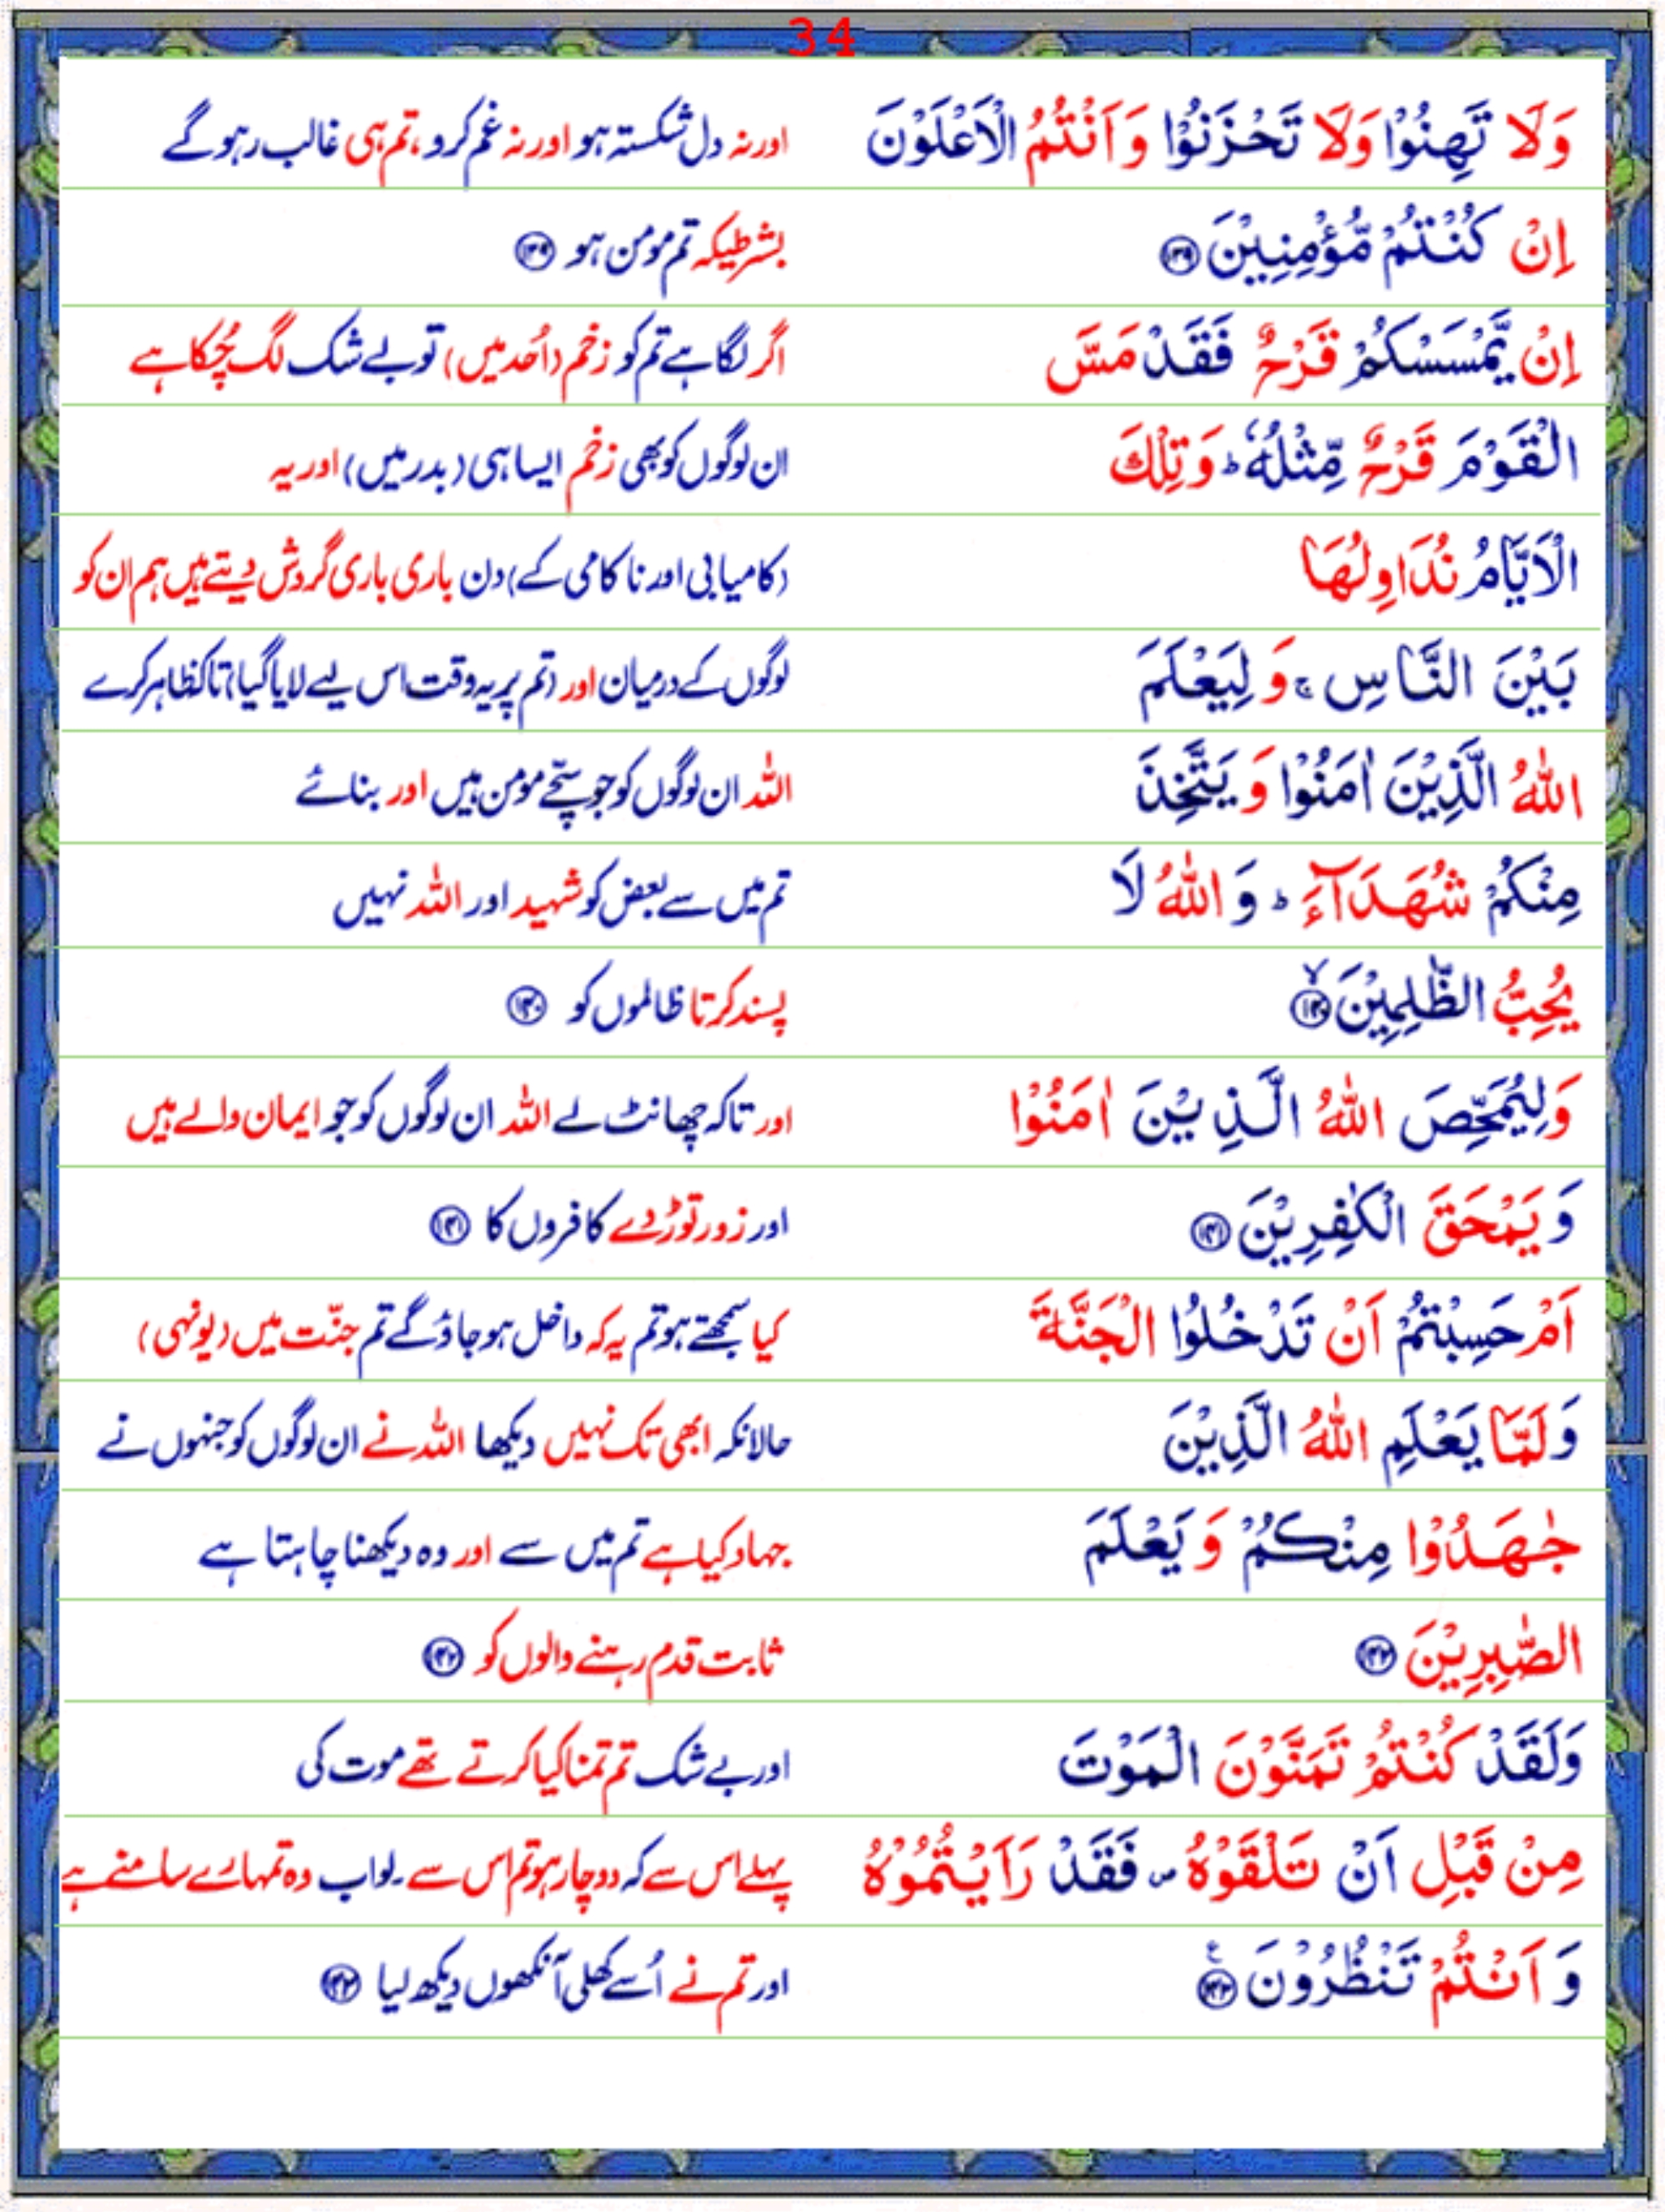 34
وَلَا تَهِنُوْا وَلَا تَحْزَنُوْا وَاَنْتُمُ الْاَعْلَوْنَ اور نہ دل شکستہ ہو اور نہ غم کرو، تم ہی غالب رہو گے
اِنْ كُنْتُمْ مُّؤْمِنِيْنَ ۝۱۳۹ بشرطیکہ تم مومن ہو ۝۱۳۹
اِنْ يَّمْسَسْكُمْ قَرْحٌ فَقَدْ مَسَّ اگر لگا ہے تم کو زخم (اُحد میں) تو بے شک لگ چُکا ہے
الْقَوْمَ قَرْحٌ مِّثْلُهٗ ؕ وَتِلْكَ ان لوگوں کو بھی زخم ایسا ہی (بدر میں) اور یہ
الْاَيَّامُ نُدَاوِلُهَا (کامیابی اور ناکامی کے) دن باری باری گردش دیتے ہیں ہم ان کو
بَيْنَ النَّاسِ ۚ وَ لِيَعْلَمَ لوگوں کے درمیان اور (تم پر یہ وقت اس لیے لایا گیا) تاکہ ظاہر کرے
اللّٰهُ الَّذِيْنَ اٰمَنُوْا وَ يَتَّخِذَ اللہ ان لوگوں کو جو سچّے مومن ہیں اور بنائے
مِنْكُمْ شُهَدَآءَ ؕ وَ اللّٰهُ لَا تم میں سے بعض کو شہید اور اللہ نہیں
يُحِبُّ الظّٰلِمِيْنَ ۝۱۴۰ۙ پسند کرتا ظالموں کو ۝۱۴۰
وَلِيُمَحِّصَ اللّٰهُ الَّذِيْنَ اٰمَنُوْا اور تاکہ چھانٹ لے اللہ ان لوگوں کو جو ایمان والے ہیں
وَ يَمْحَقَ الْكٰفِرِيْنَ ۝۱۴۱ اور زور توڑ دے کافروں کا ۝۱۴۱
اَمْ حَسِبْتُمْ اَنْ تَدْخُلُوا الْجَنَّةَ کیا سمجھتے ہو تم یہ کہ داخل ہو جاؤ گے تم جنّت میں (یونہی)
وَ لَمَّا يَعْلَمِ اللّٰهُ الَّذِيْنَ حالانکہ ابھی تک نہیں دیکھا اللہ نے ان لوگوں کو جنہوں نے
جٰهَدُوْا مِنْكُمْ وَ يَعْلَمَ جہاد کیا ہے تم میں سے اور وہ دیکھنا چاہتا ہے
الصّٰبِرِيْنَ ۝۱۴۲ ثابت قدم رہنے والوں کو ۝۱۴۲
وَلَقَدْ كُنْتُمْ تَمَنَّوْنَ الْمَوْتَ اور بے شک تم تمنا کیا کرتے تھے موت کی
مِنْ قَبْلِ اَنْ تَلْقَوْهُ ۪ فَقَدْ رَاَيْتُمُوْهُ پہلے اس سے کہ دوچار ہو تم اس سے۔ لو اب وہ تمہارے سامنے ہے
وَ اَنْتُمْ تَنْظُرُوْنَ ۝۱۴۳ؑ اور تم نے اُسے کھلی آنکھوں دیکھ لیا ۝۱۴۳